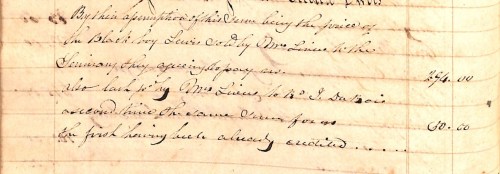 By their assumption of this Sum being the price of
the Black boy Lewis sold by Mrs Liveus to the
Seminary they agreeing to pay as. 294.00
also Cash pd by Mrs Liveus to Rd J. Dubois
a second time the same Sum for 60.00
the first having been already credited . . . . . .